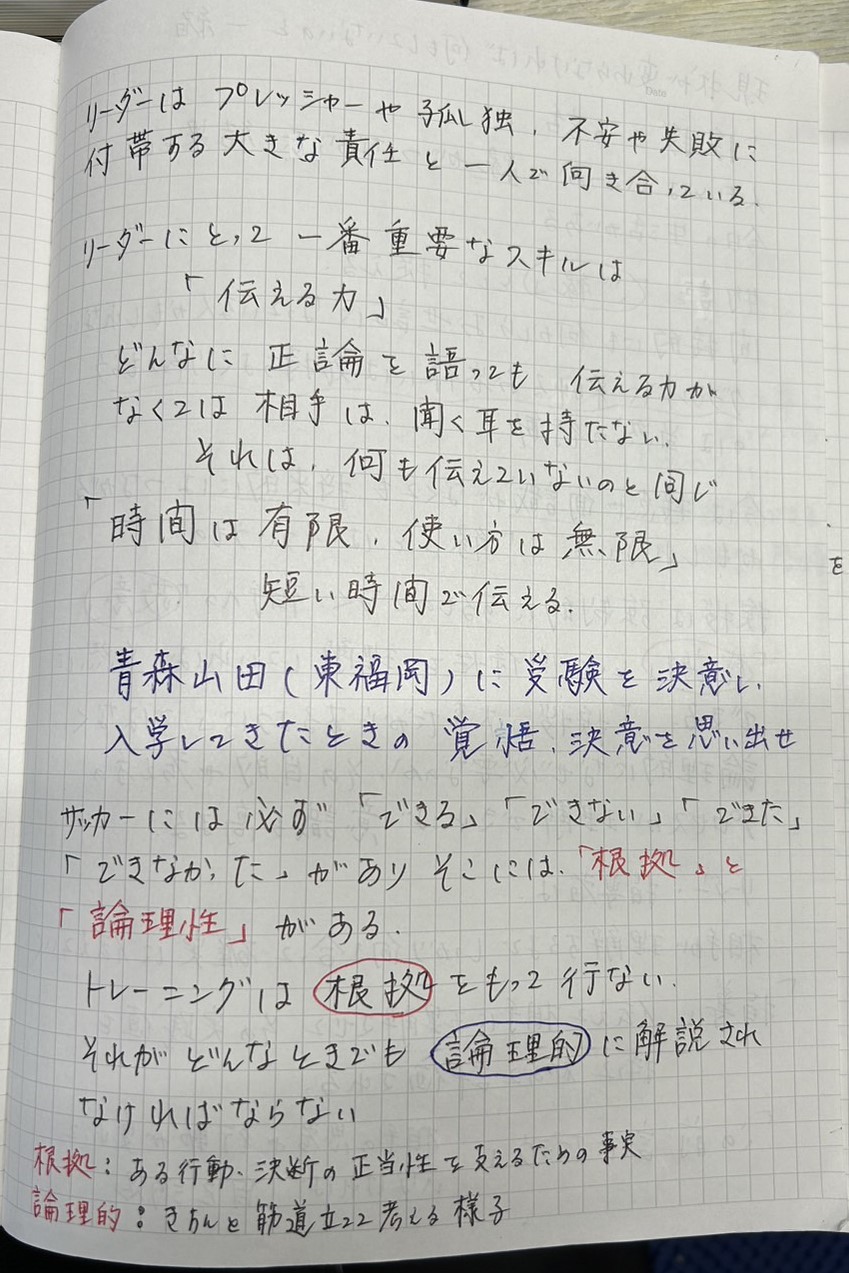 リーダーは プレッシャーや 孤独、不安や失敗に
付帯する大きな責任と一人で向き合っている。
リーダーにとって 一番重要なスキルは
「伝える力」
どんなに 正論を語っても 伝える力が
なくては 相手は、聞く耳を持たない。
それは、何も伝えていないのと同じ
「時間は有限、使い方は無限」
短い時間で伝える。
青森山田(東福岡)に受験を決意し、
入学してきたときの 覚悟、決意を思い出せ
サッカーには必ず「できる」「できない」「できた」
「できなかった」があり そこには、「根拠」と
「論理性」がある。
トレーニングは 根拠 をもって行ない、
それが どんなときでも 論理的 に解説され
なければならない
根拠:ある行動、決断の正当性を支えるための事実
論理的:きちんと筋道立てて考える様子